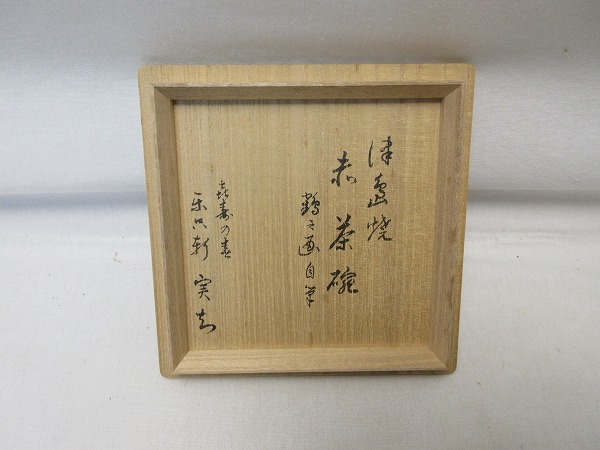 津島焼
赤茶碗
鶴之画自筆
喜寿の春
楽只軒 実